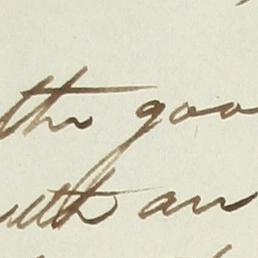 the goo
with an